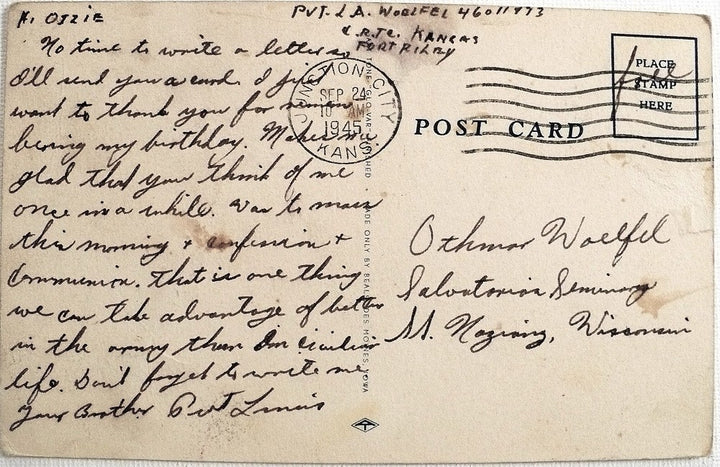 Hi Ozzie
PVT. L A. WOELFEL 46011973
C.R.T.C. KANSAS
FORT RILEY
No time to write a letter so
I'll send you a card. I just
want to thank you for remem
bering my birthday. Makes me
glad that you think of me
once in a while. Was to mass
this morning + confession +
Communion. That is one thing
we can take advantage of better
in the army than in civilian
life. Don't forget to write me
Your Brother Pvt Louis
JUNCTION CITY
SEP 24
10 AM
1945
KANS.
POST CARD
PLACE
STAMP
HERE
free
Othmar Woelfel
Salvatorian Seminary
St. Nazianz, Wisconsin
MADE ONLY BY
MOINES, IOWA